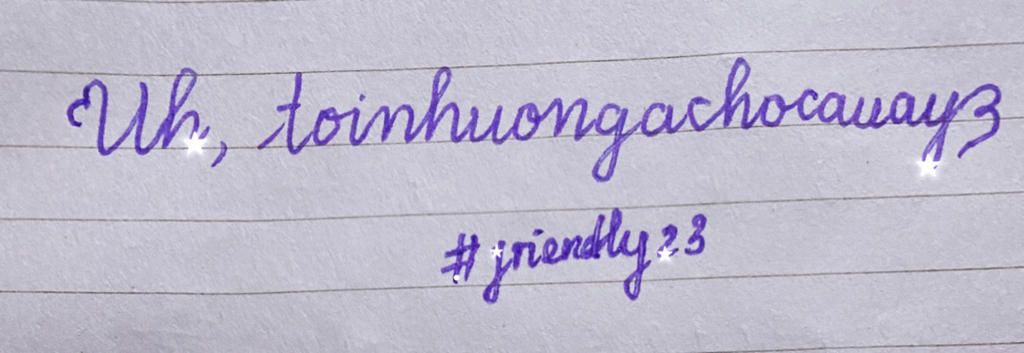 Uh, toinhuongachocauay3
#friendly23